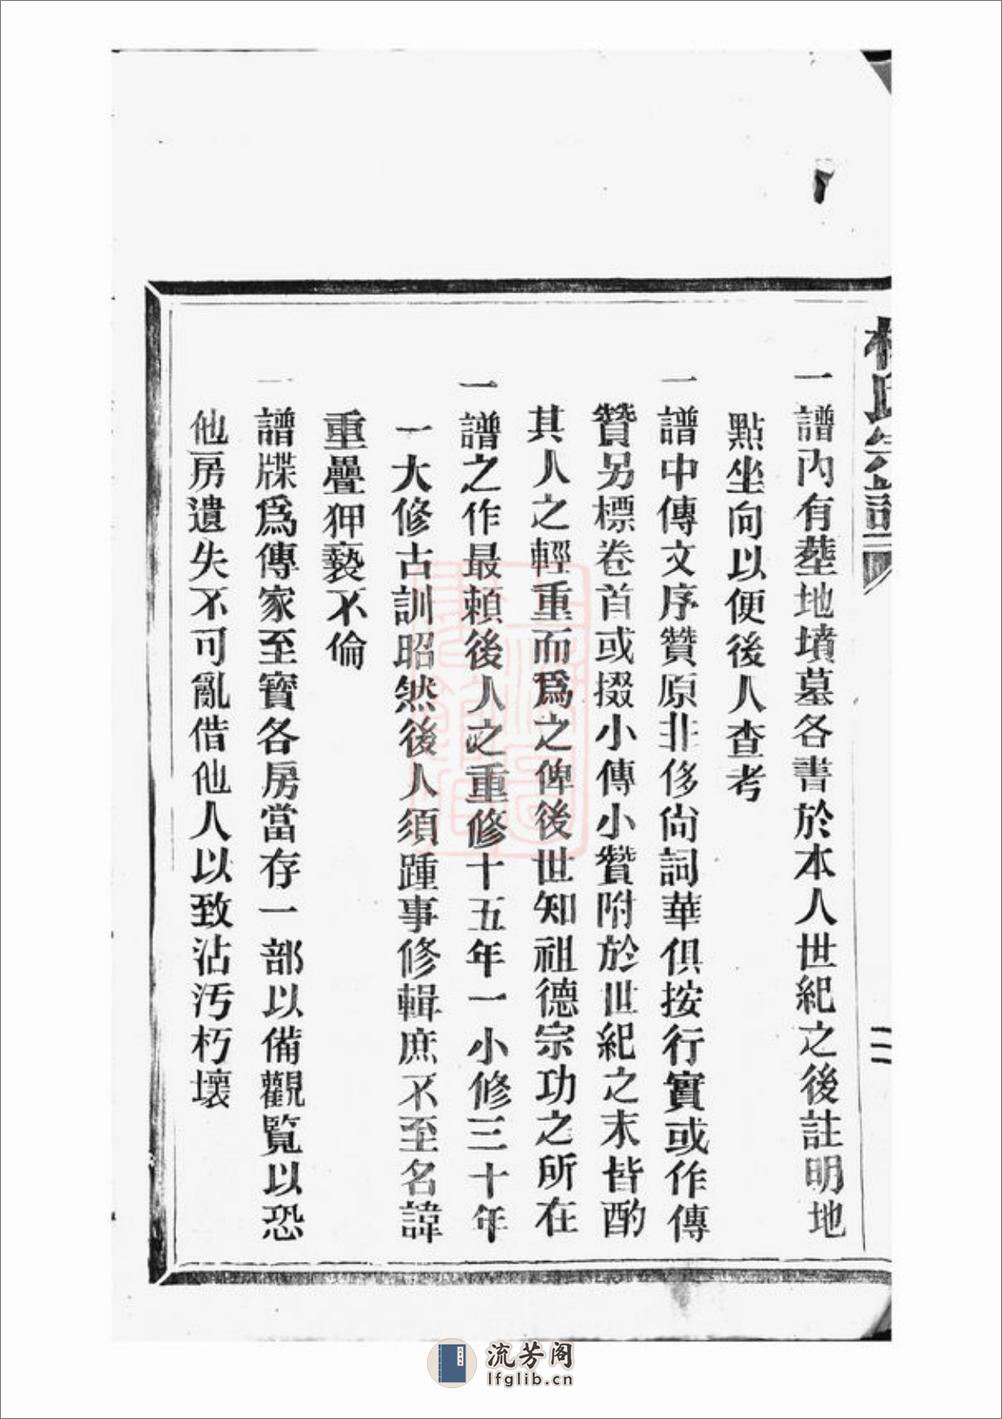 一譜內有塋地墳墓各書於本人世紀之後註明地
點坐向以便後人查考
一譜中傳文序贊原非侈尙詞華俱按行實或作傳
贊另標卷首或掇小傳小贊附於世紀之末皆酌
其人之輕重而爲之俾後世知祖德宗功之所在
一譜之作最賴後人之重修十五年一小修三十年
一大修古訓昭然後人須踵事修輯庶不至名諱
重疊狎褻不倫
一譜牒爲傳家至寶各房當存一部以備觀覧以恐
他房遺失不可亂借他人以致沾汚朽壞
流芳阁
lfglib.cn